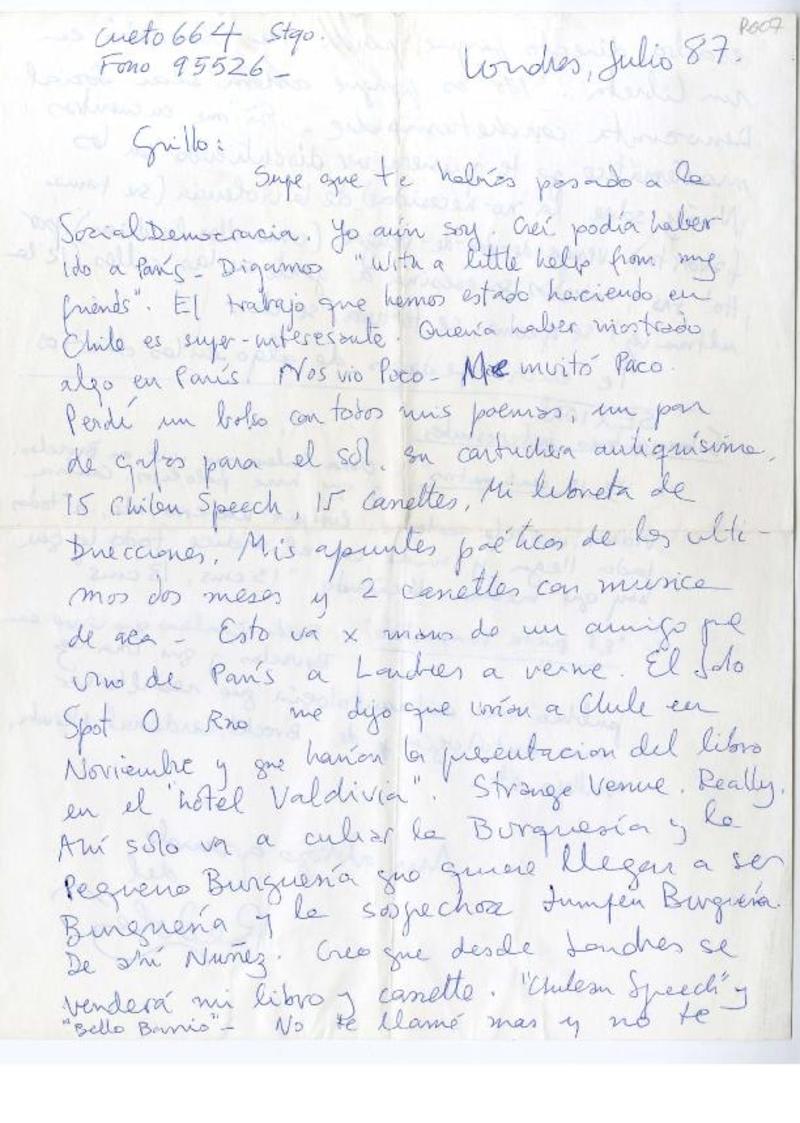 P007
Cueto 664 Stgo.
Fono 95526_
Londres, Julio 87.
Grillo:
Supe que te habías pasado a la
SocialDemocracia. Yo aún soy. Creí podía haber
ido a París - Digamos "With a little help from my
friends". El trabajo que hemos estado haciendo en
Chile es super-interesante. Quería haber mostrado
algo en París. Nos vio Poco - Me invitó Paco.
Perdí un bolso con todos mis poemas, un par
de gafas para el sol, su cartuchera antiquísima,
15 Chilean Speech, 15 Cassettes, Mi libreta de
Direcciones, Mis apuntes poéticos de los ulti-
mos dos meses y 2 cassettes con musica
de aca - Esto va x mano de un amigo que
vino de París a Londres a verme. El Soto
me dijo que virían a Chile en
Noviembre y que harían la presentacion del libro
en el "hotel Valdivia". Strange Venue. Really.
Ahí solo va a culiar la Burguesía y la
Pequeño Burguesía que quiere llegar a ser
Burguesía y la sospechoza Lumpen Burguesía.
De ahí Nuñez. Creo que desde Londres se
venderá mi libro y cassette. "Chilean Speech" y
"Bello Barrio" - No te llamé mas y no te